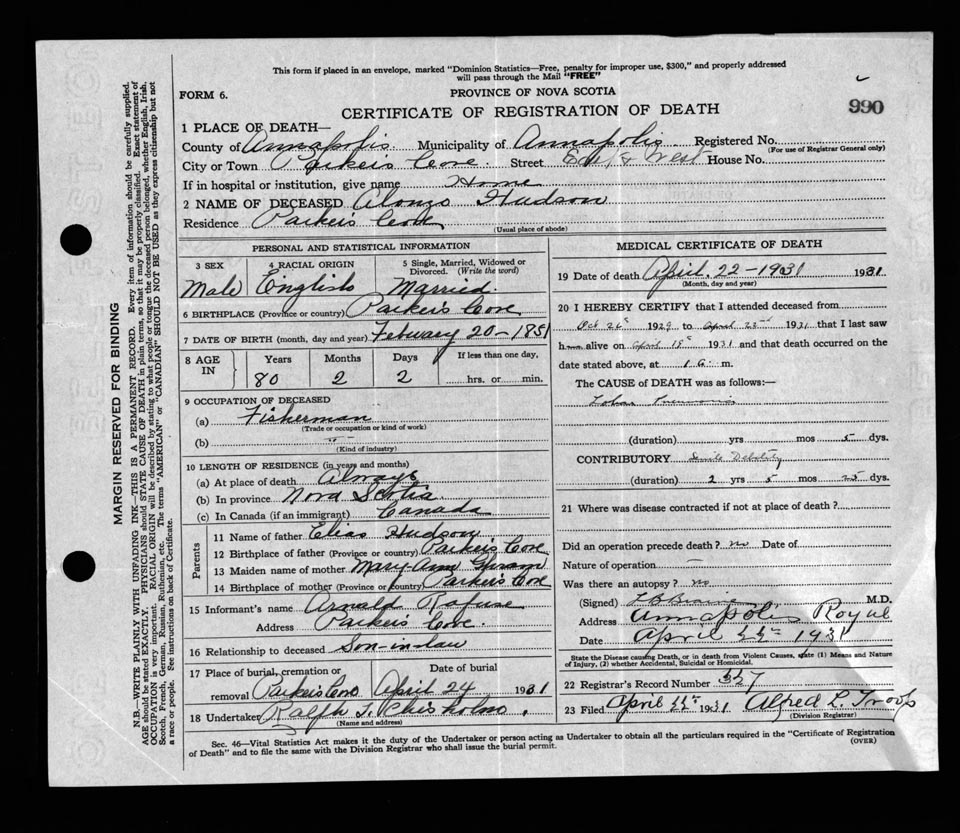 This form if placed in an envelope, marked "Dominion Statistics—Free, penalty for improper use, $300," and properly addressed
will pass through the Mail "FREE"
FORM 6.
PROVINCE OF NOVA SCOTIA
CERTIFICATE OF REGISTRATION OF DEATH
990
1 PLACE OF DEATH—
County of Annapolis Municipality of Annapolis Registered No.
(For use of Registrar General only)
City or Town Parkers Cove Street West House No.
If in hospital or institution, give name Home
2 NAME OF DECEASED Alonzo Hudson
Residence Parker's Cove
(Usual place of abode)
PERSONAL AND STATISTICAL INFORMATION
3 SEX
Male
4 RACIAL ORIGIN
English
5 Single, Married, Widowed or
Divorced. (Write the word)
Married.
6 BIRTHPLACE (Province or country) Parker's Cove
7 DATE OF BIRTH (month, day and year) Febuary 20-1851
8 AGE
IN
Years
80
Months
2
Days
2
If less than one day,
hrs. or min.
9 OCCUPATION OF DECEASED
(a) Fisherman
(Trade or occupation or kind of work)
(b) " "
(Kind of industry)
10 LENGTH OF RESIDENCE (in years and months)
(a) At place of death Always
(b) In province Nova Scotia
(c) In Canada (if an immigrant) Canada
Parents
11 Name of father Elias Hudson
12 Birthplace of father (Province or country) Parker's Cove
13 Maiden name of mother Mary Ann
14 Birthplace of mother (Province or country) Parker's Cove
15 Informant's name Arnold Rafuse
Address Parker's Cove.
16 Relationship to deceased Son-in-law
17 Place of burial, cremation or
removal Parkers Cove
Date of burial
April 24 1931
18 Undertaker Ralph T. Chisholm.
(Name and address)
MEDICAL CERTIFICATE OF DEATH
19 Date of death April. 22-1931 1931
(Month, day and year)
20 I HEREBY CERTIFY that I attended deceased from
Oct 26th 1929 to April 1931 that I last saw
h alive on April 18th 1931 and that death occurred on
date stated above, at m.
The CAUSE of DEATH was as follows:—
Lobar Pneumonia
(duration) yrs mos 5 dys.
CONTRIBUTORY Senile Debility
(duration) 2 yrs 5 mos 25 dys.
21 Where was disease contracted if not at place of death?
Did an operation precede death? no Date of
Nature of operation —
Was there an autopsy? no
(Signed) M.D.
Address Annapolis Royal
Date April 1931
State the Disease causing Death, or in death from Violent Causes, state (1) Means and Nature
of Injury, (2) whether Accidental, Suicidal or Homicidal.
22 Registrar's Record Number 327
23 Filed April 1931 Alfred L. Troop
(Division Registrar)
Sec. 46—Vital Statistics Act makes it the duty of the Undertaker or person acting as Undertaker to obtain all the particulars required in the "Certificate of Registration
of Death" and to file the same with the Division Registrar who shall issue the burial permit.
(OVER)
MARGIN RESERVED FOR BINDING
N.B.—WRITE PLAINLY WITH UNFADING INK—THIS IS A PERMANENT RECORD. Every item of information should be carefully supplied.
AGE should be stated EXACTLY. PHYSICIANS should STATE CAUSE OF DEATH in plain terms, so that it may be properly classified. Exact statement of
OCCUPATION is very important. RACIAL ORIGIN will be described by stating to what people or tongue the deceased person belonged, whether English, Irish,
Scotch, French, German, Russian, Ruthenian, etc. The terms "AMERICAN" or "CANADIAN" SHOULD NOT BE USED as they express citizenship but not
a race or people. See instructions on back of Certificate.